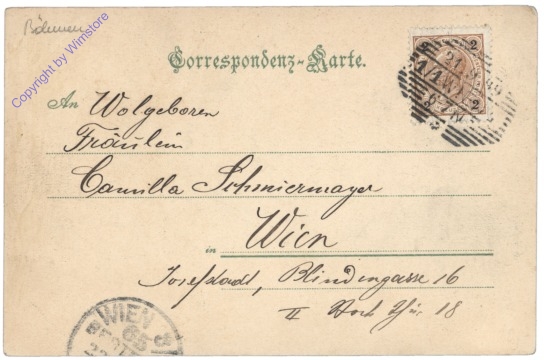 Böhmen
Copyright by Wimstore
Correspondenz-Karte.
2
2
An Wolgeboren
Fräulein
Camilla Schmiermayer
in Wien
Josefstadt, Blindengasse 16
II Stock Thür 18
WIEN
65